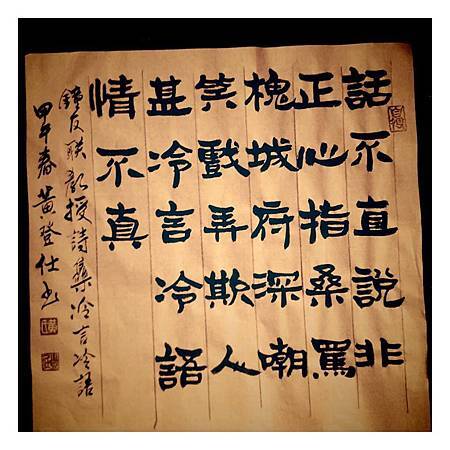 話不直說非
正心指桑罵
槐城府深嘲
笑戲弄欺人
甚冷言冷語
情不真
鐘友聯教授詩集冷言冷語
甲午春黃登仕书